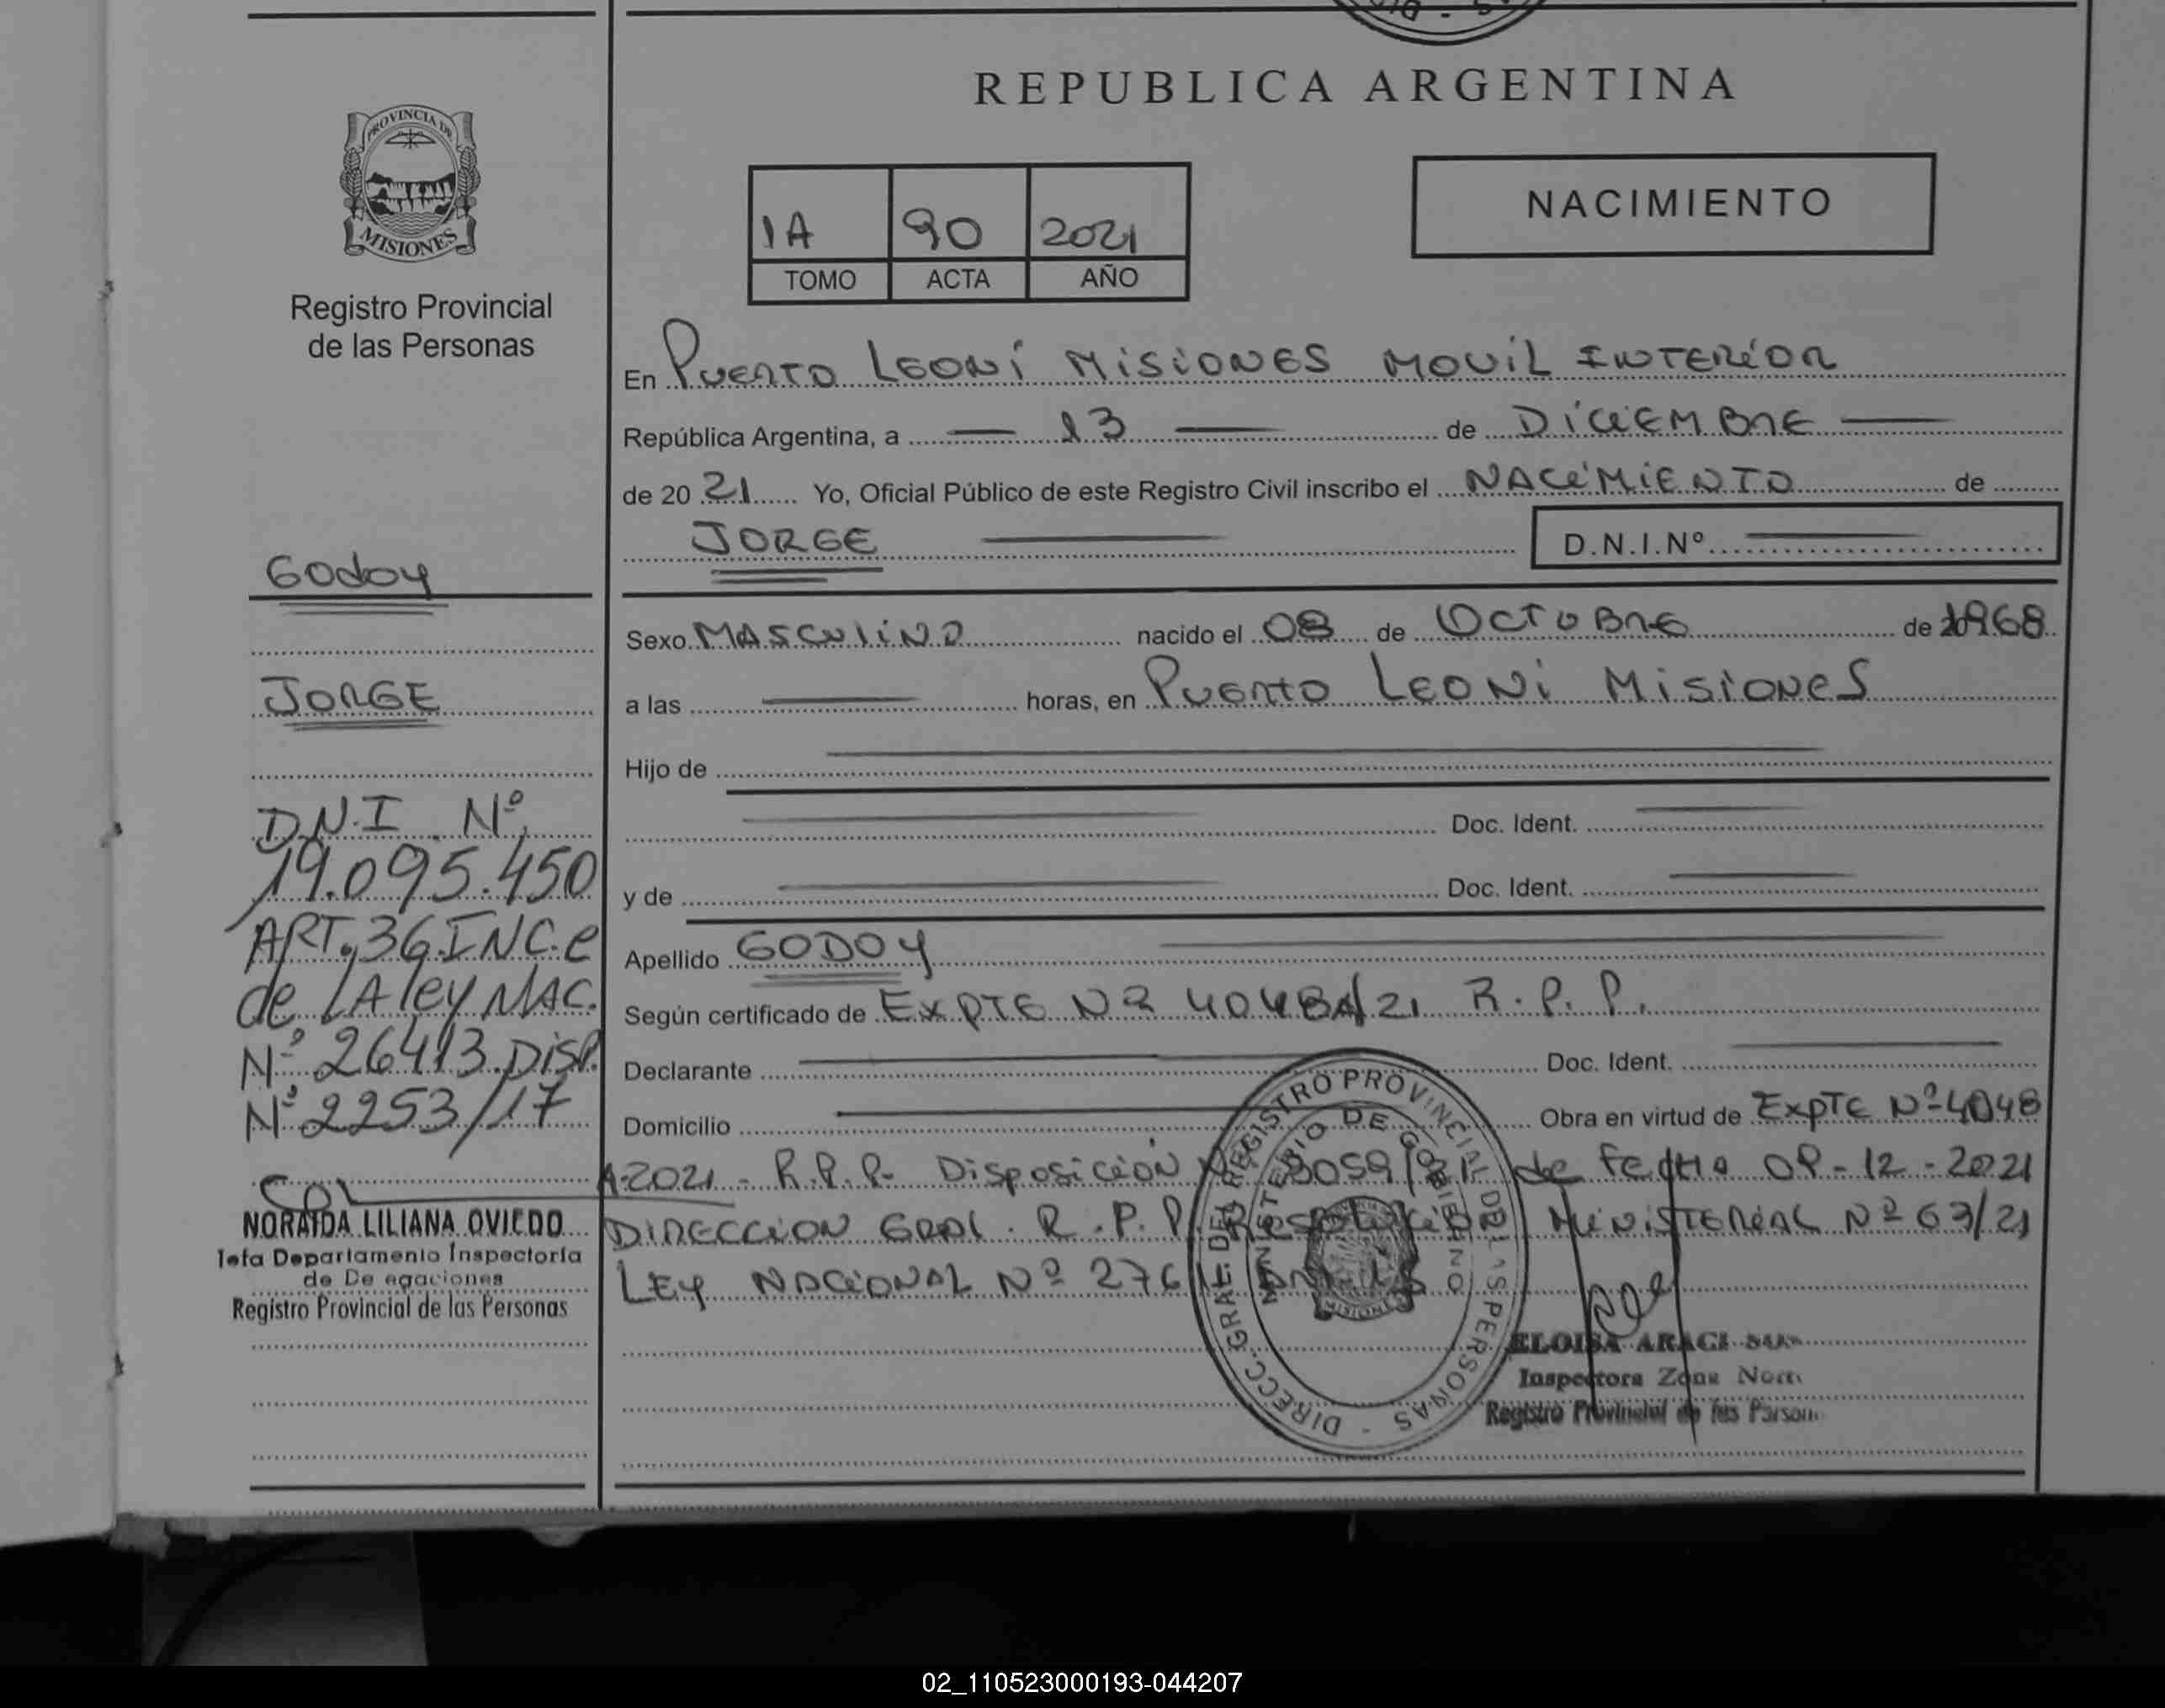 REPUBLICA ARGENTINA
PROVINCIA DE
MISIONES
Registro Provincial
de las Personas
1A 90 2021
TOMO ACTA AÑO
NACIMIENTO
En Puerto Leoni Misiones Movil Interior
República Argentina, a — 13 — de Diciembre —
de 20 21 Yo, Oficial Público de este Registro Civil inscribo el Nacimiento de
JORGE — D.N.I.Nº —
Sexo Masculino nacido el 08 de Octubre de 1968
a las — horas, en Puerto Leoni Misiones
Hijo de —
— Doc. Ident. —
y de — Doc. Ident. —
Apellido GODOY —
Según certificado de Expte Nº 4048A/21 R.P.P.
Declarante — Doc. Ident. —
Domicilio — Obra en virtud de Expte Nº 4048
A-2021 - R.P.P. Disposición 3059/21 de fecha 09-12-2021
Direccion Gral. R.P.P. Resolución Ministerial Nº 63/21
Ley Nacional Nº
Godoy
JORGE
D.N.I Nº
19.095.450
ART. 36 INC. e
de LA ley NAC.
Nº 26413 DISP.
Nº 2253/17
NORAIDA LILIANA OVIEDO
Jefa Departamento Inspectoría
de Delegaciones
Registro Provincial de las Personas
DIRECC. GRAL. DEL REGISTRO PROVINCIAL DE LAS PERSONAS -
MINISTERIO DE GOBIERNO
MISIONES
ELOISA
Inspectora Zona
Registro Provincial de las
02_110523000193-044207